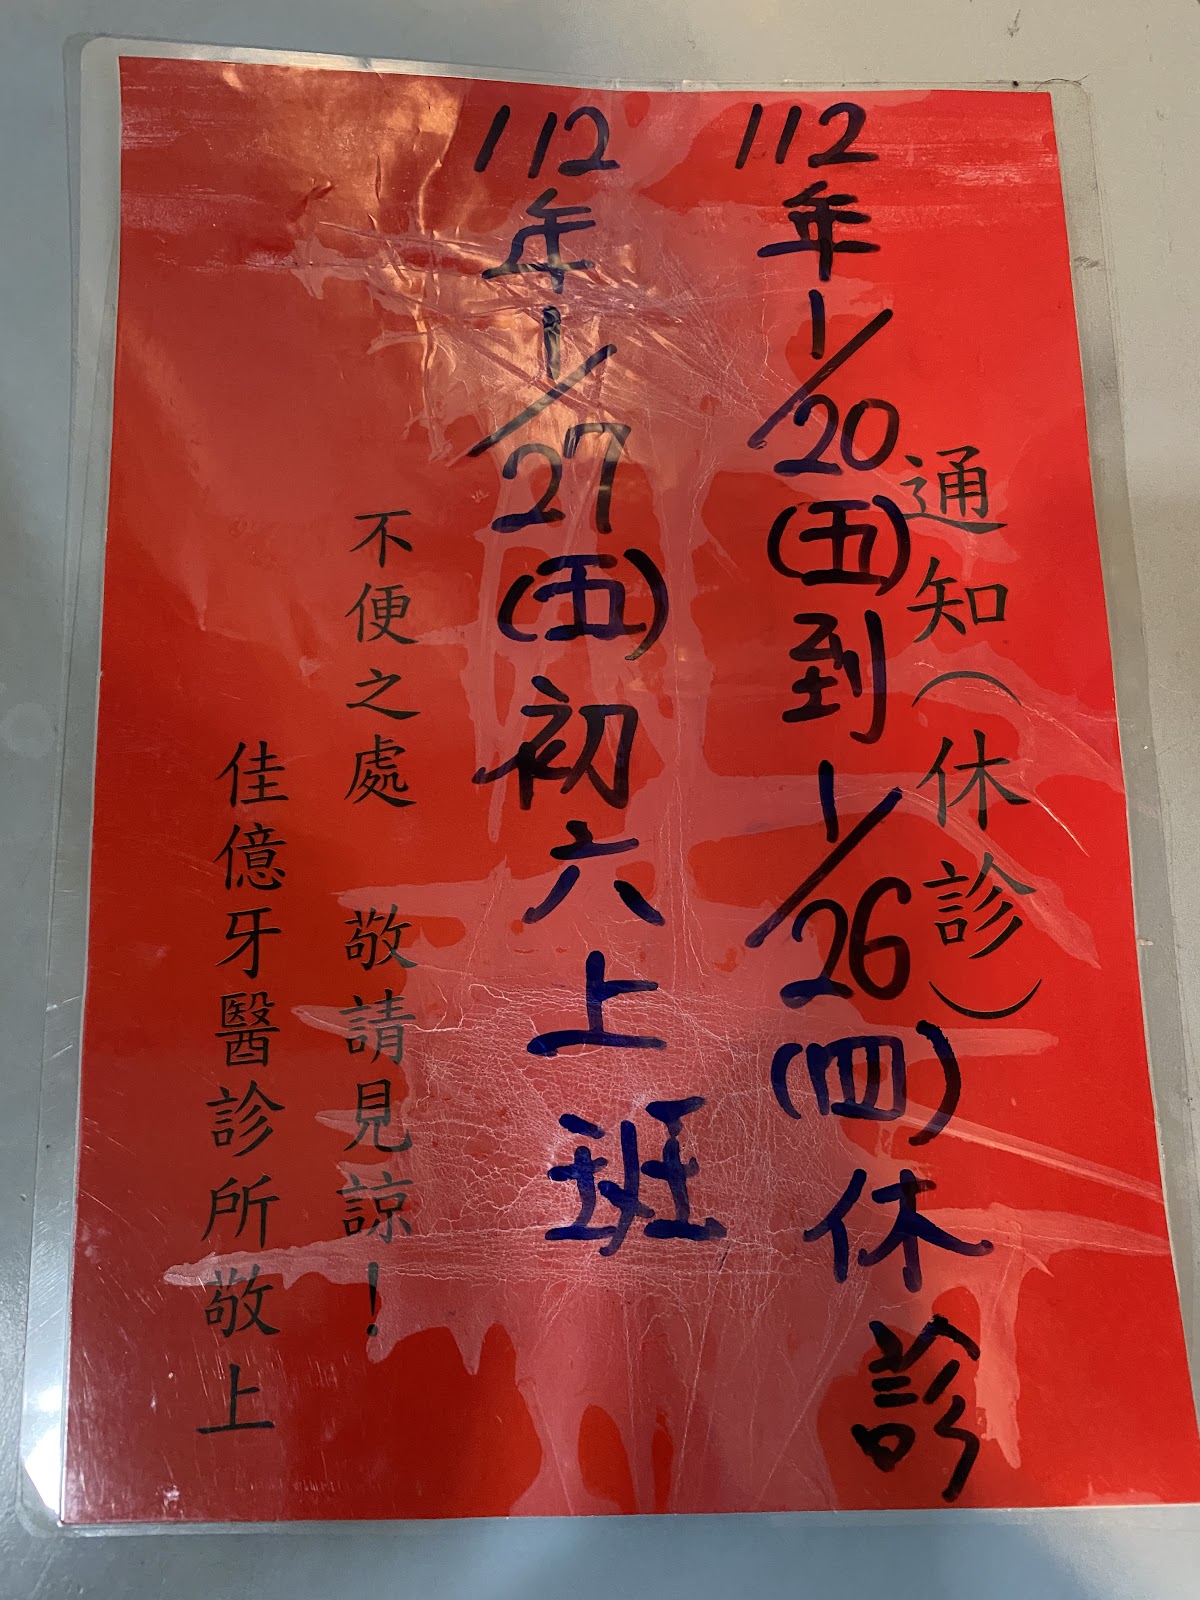 通知(休診)
112年1/20(五)到1/26(四)休診
112年1/27(五)初六上班
不便之處 敬請見諒!
佳億牙醫診所敬上